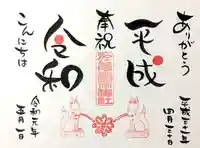 ありがとう
平成
平成三十一年
四月三十日
奉祝
令和
こんにちは
令和元年
五月一日